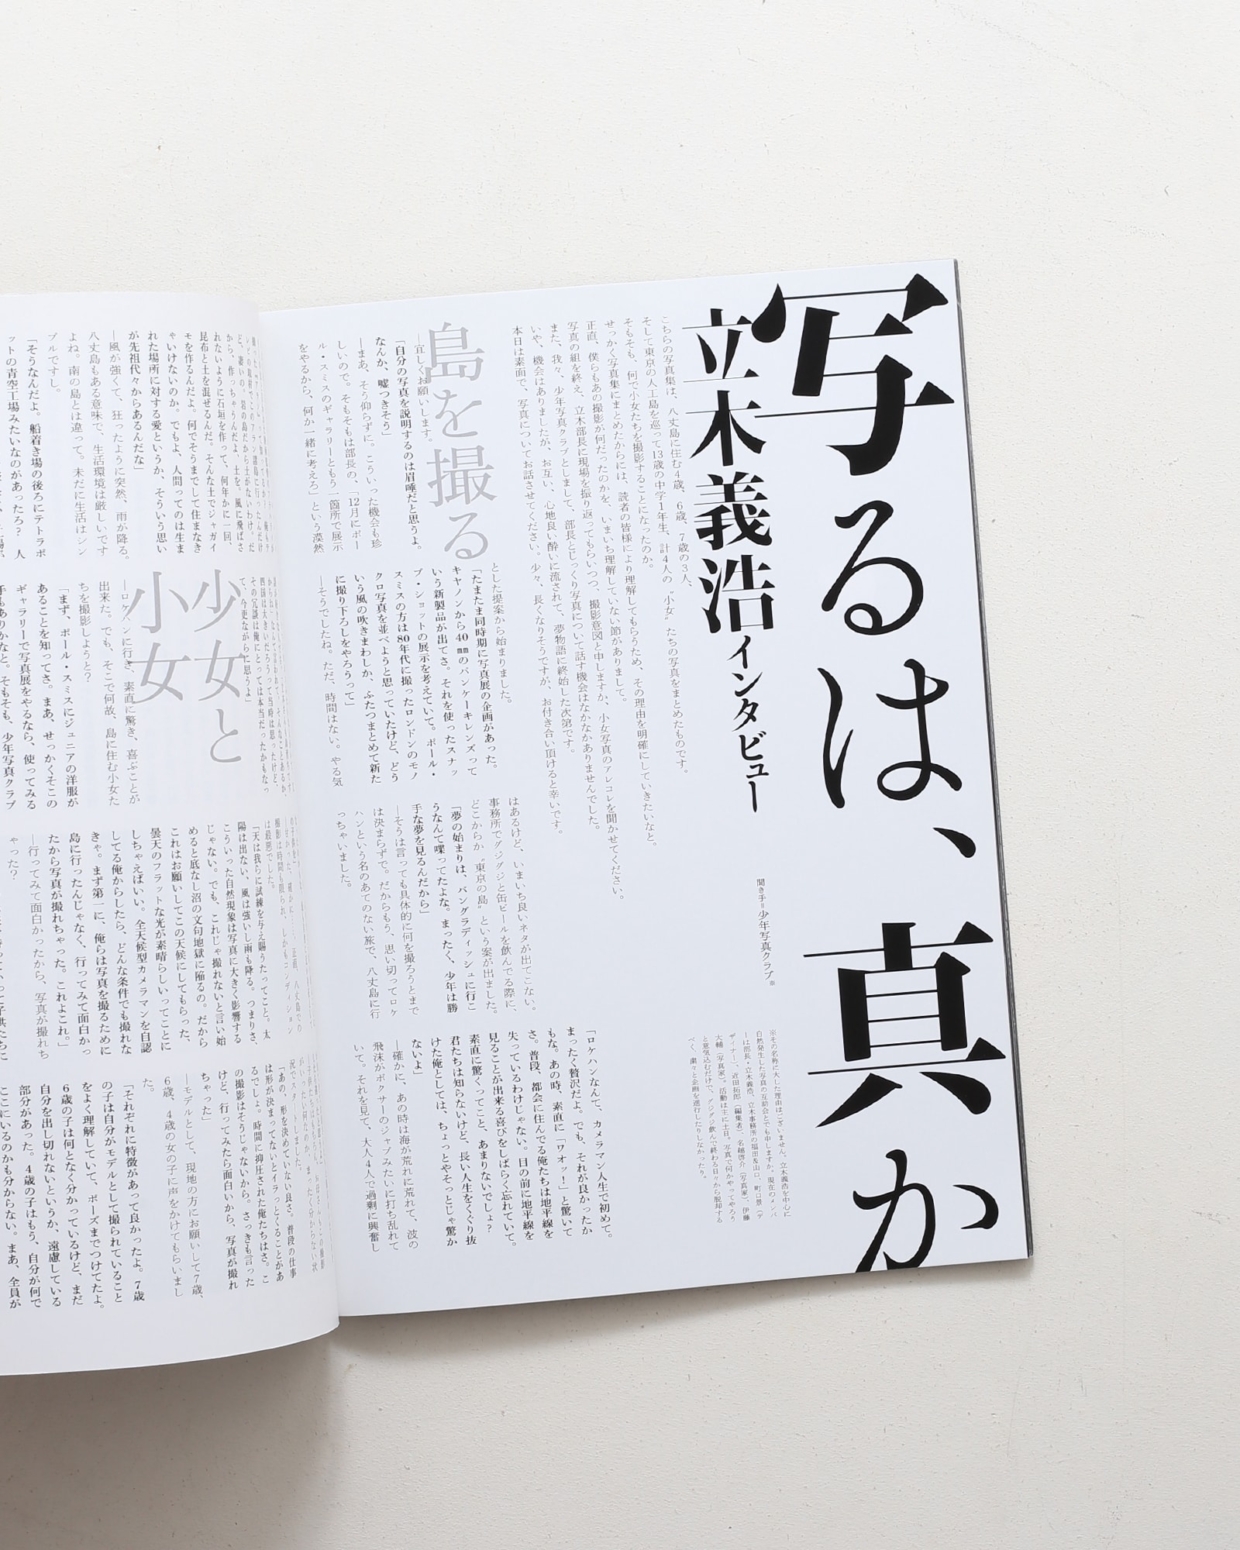 写るは、真か
立木義浩インタビュー
聞き手＝少年写真クラブ※
こちらの写真集は、八丈島に住む4歳、6歳、7歳の3人、
そして東京の人工島を巡って13歳の中学1年生、計4人の“小女”たちの写真をまとめたものです。
そもそも、何で小女たちを撮影することになったのか。
せっかく写真集にまとめたからには、読者の皆様により理解してもらうため、その理由を明確にしていきたいなと。
正直、僕らもあの撮影が何だったのかを、いまいち理解していない節がありまして。
写真の組を終え、立木部長に現場を振り返ってもらいつつ、撮影意図と申しますか、小女写真のアレコレを聞かせてください。
また、我々、少年写真クラブとしまして、部長とじっくり写真について話す機会はなかなかありませんでした。
いや、機会はありましたが、お互い、心地良い酔いに流されて、夢物語に終始した次第です。
本日は素面で、写真についてお話させてください。少々、長くなりそうですが、お付き合い頂けると幸いです。
島を撮る
―宜しくお願いします。
「自分の写真を説明するのは眉唾だと思うよ。
なんか、嘘つきそう」
―まあ、そう仰らずに。こういった機会も珍
しいので。そもそもは部長の、「12月にポー
ル・スミスのギャラリーともう一箇所で展示
をやるから、何か一緒に考えろ」という漠然
とした提案から始まりました。
「たまたま同時期に写真展の企画があった。
キヤノンから40㎜のパンケーキレンズって
いう新製品が出てさ。それを使ったスナッ
プ・ショットの展示を考えていて。ポール・
スミスの方は80年代に撮ったロンドンのモノ
クロ写真を並べようと思っていたけど、どう
いう風の吹きまわしか、ふたつまとめて新た
に撮り下ろしをやろうって」
―そうでしたね。ただ、時間はない。やる気
はあるけど、いまいち良いネタが出てこない。
事務所でグジグジと缶ビールを飲んでる際に、
どこからか“東京の島”という案が出ました。
「夢の始まりは、バングラディッシュに行こ
うなんて喋ってたよな。まったく、少年は勝
手な夢を見るんだから」
―そうは言っても具体的に何を撮ろうとまで
は決まらずで。だからもう、思い切ってロケ
ハンという名のあてのない旅で、八丈島に行
っちゃいました。
「ロケハンなんて、カメラマン人生で初めて。
まったく贅沢だよ。でも、それが良かったか
もな。あの時、素直に「ワオッ！」と驚いて
さ。普段、都会に住んでる俺たちは地平線を
失っているわけじゃない。目の前に地平線を
見ることが出来る喜びをしばらく忘れていて。
素直に驚くってこと、あまりないでしょ？
君たちは知らないけど、長い人生をくぐり抜
けた俺としては、ちょっとやそっとじゃ驚か
ないよ」
―確かに、あの時は海が荒れに荒れて、波の
飛沫がボクサーのジャブみたいに打ち乱れて
いて。それを見て、大人4人で過剰に興奮し
から、作っちゃうんだよ、土を。風に飛ばさ
れないように石垣を作って、何年かに一回、
昆布と土を混ぜるんだ。そんな土でジャガイ
モを作るんだよ。何でそうまでして住まなき
ゃいけないのか。でもよ、人間ってのは生ま
れた場所に対する愛というか、そういう思い
が先祖代々からあるんだな」
―風が強くて、狂ったように突然、雨が降る。
八丈島もある意味で、生活環境は厳しいです
よね。南の島とは違って。未だに生活はシン
プルですし。
「そうなんだよ。船着き場の後ろにテトラポ
ットの青空工場みたいなのがあったろ？ 人
少女と
小女
―ロケハンに行き、素直に驚き、喜ぶことが
出来た。でも、そこで何故、島に住む小女た
ちを撮影しようと？
「まず、ポール・スミスにジュニアの洋服が
あることを知ってさ。まあ、せっかくそこの
ギャラリーで写真展をやるなら、使ってみる
手もありかなと。そもそも、少年写真クラブ
「天は我らに試練を与え賜うたってこと。太
陽は出ない、風は強いし雨も降る。つまりさ、
こういった自然現象は写真に大きく影響する
じゃない。でも、これじゃ撮れないと言い始
めると底なし沼の文句地獄に陥るの。だから
これはお願いしてこの天候にしてもらった、
曇天のフラットな光が素晴らしいってことに
しちゃえばい。全天候型カメラマンを自認
してる俺からしたら、どんな条件でも撮れな
きゃ。まず第一に、俺らは写真を撮るために
島に行ったんじゃなく、行ってみて面白かっ
たから写真が撮れちゃった。これよこれ」
―行ってみて面白かったから、写真が撮れち
ゃった？
「あの、形を決めていない良さ。普段の仕事
は形が決まってないとイラッとくることがあ
るでしょ。時間に抑圧された俺たちはさ。こ
の撮影はそうじゃないから。さっきも言った
けど、行ってみたら面白いから、写真が撮れ
ちゃった」
―モデルとして、現地の方にお願いして7歳、
6歳、4歳の女の子に声をかけてもらいまし
た。
「それぞれに特徴があって良かったよ。7歳
の子は自分がモデルとして撮られていること
をよく理解していて、ポーズまでつけてたよ。
6歳の子は何となく分かっているけど、まだ
自分を出し切れないというか、遠慮している
部分があった。4歳の子はもう、自分が何で
ここにいるのかも分からない。まあ、全員が